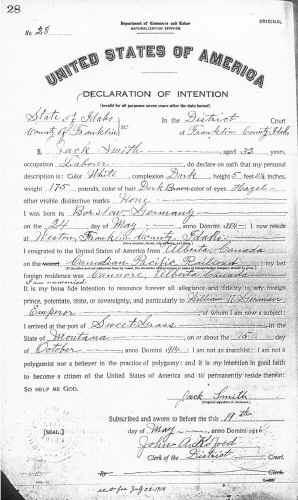 28
ORIGINAL
Department of Commerce and Labor
NATURALIZATION SERVICE
No. 28
UNITED STATES OF AMERICA
DECLARATION OF INTENTION
(Invalid for all purposes seven years after the date hereof)
State of Idaho
County of Franklin ss:
In the District Court
of Franklin County Idaho
I, Jack Smith, aged 32 years,
occupation Laborer, do declare on oath that my personal
description is: Color White, complexion Dark, height 5 feet inches,
weight 175 pounds, color of hair Dark Brown color of eyes Hazel
other visible distinctive marks None
I was born in Germany
on the 24 day of May, anno Domini; I now reside
at Weston, Franklin County, Idaho
I emigrated to the United States of America from Alberta Canada
on the vessel Canadian Pacific Railroad; my last
foreign residence was Alberta Canada
I am married
It is my bona fide intention to renounce forever all allegiance and fidelity to any foreign
prince, potentate, state, or sovereignty, and particularly to William II German
Emperor, of whom I am now a subject;
I arrived at the port of Sweet Grass, in the
State of Montana, on or about the 15 day
of October, anno Domini 1914; I am not an anarchist; I am not a
polygamist nor a believer in the practice of polygamy; and it is my intention in good faith
to become a citizen of the United States of America and to permanently reside therein:
SO HELP ME GOD.
Jack Smith
Subscribed and sworn to before me this 19th
[SEAL]
day of May, anno Domini 1916
Clerk of the District Court.